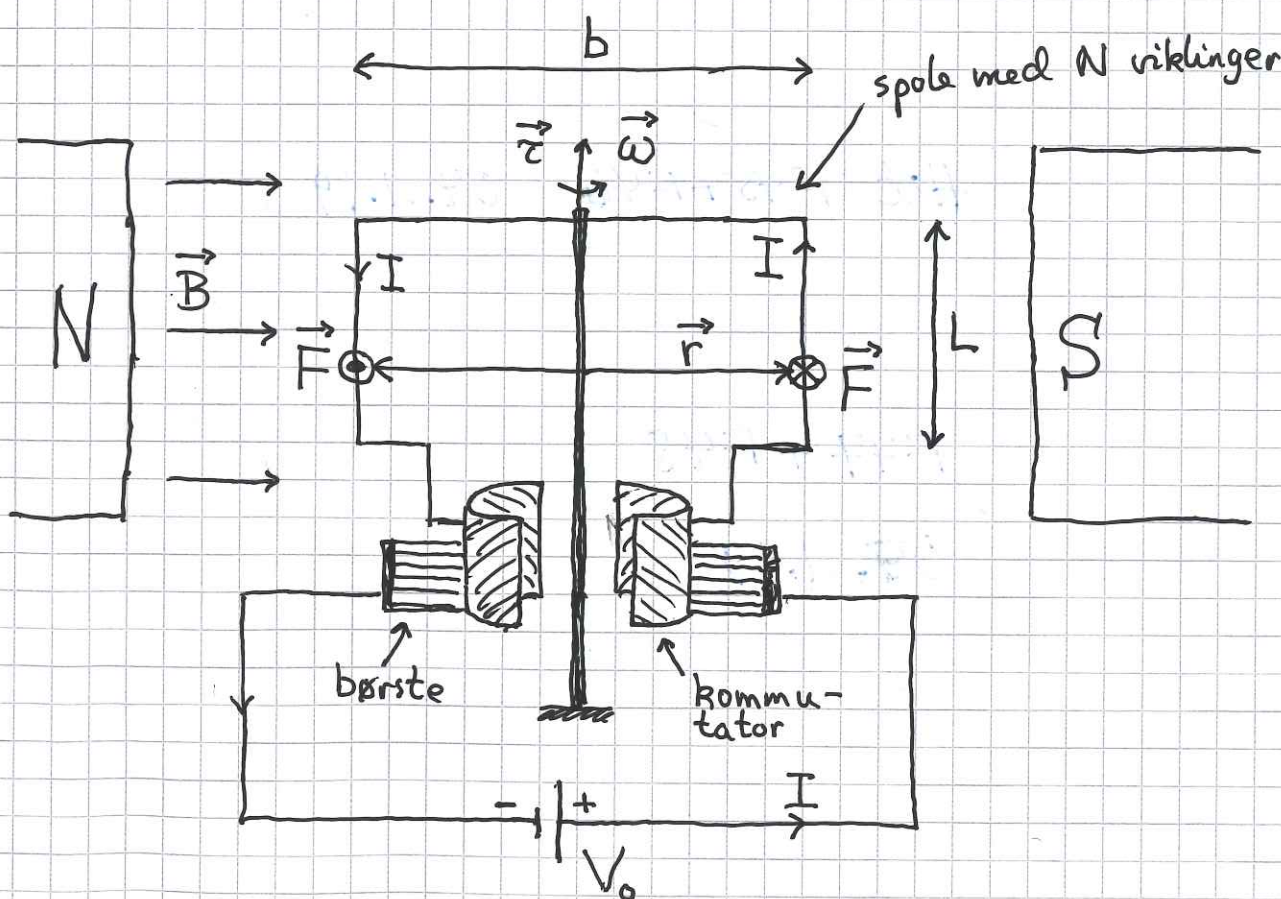 b
spole med N viklinger
τ⃗ ω⃗
N
B⃗
I
I
F⃗
r⃗
F⃗
L
S
børste
kommu-
tator
- +
I
V₀